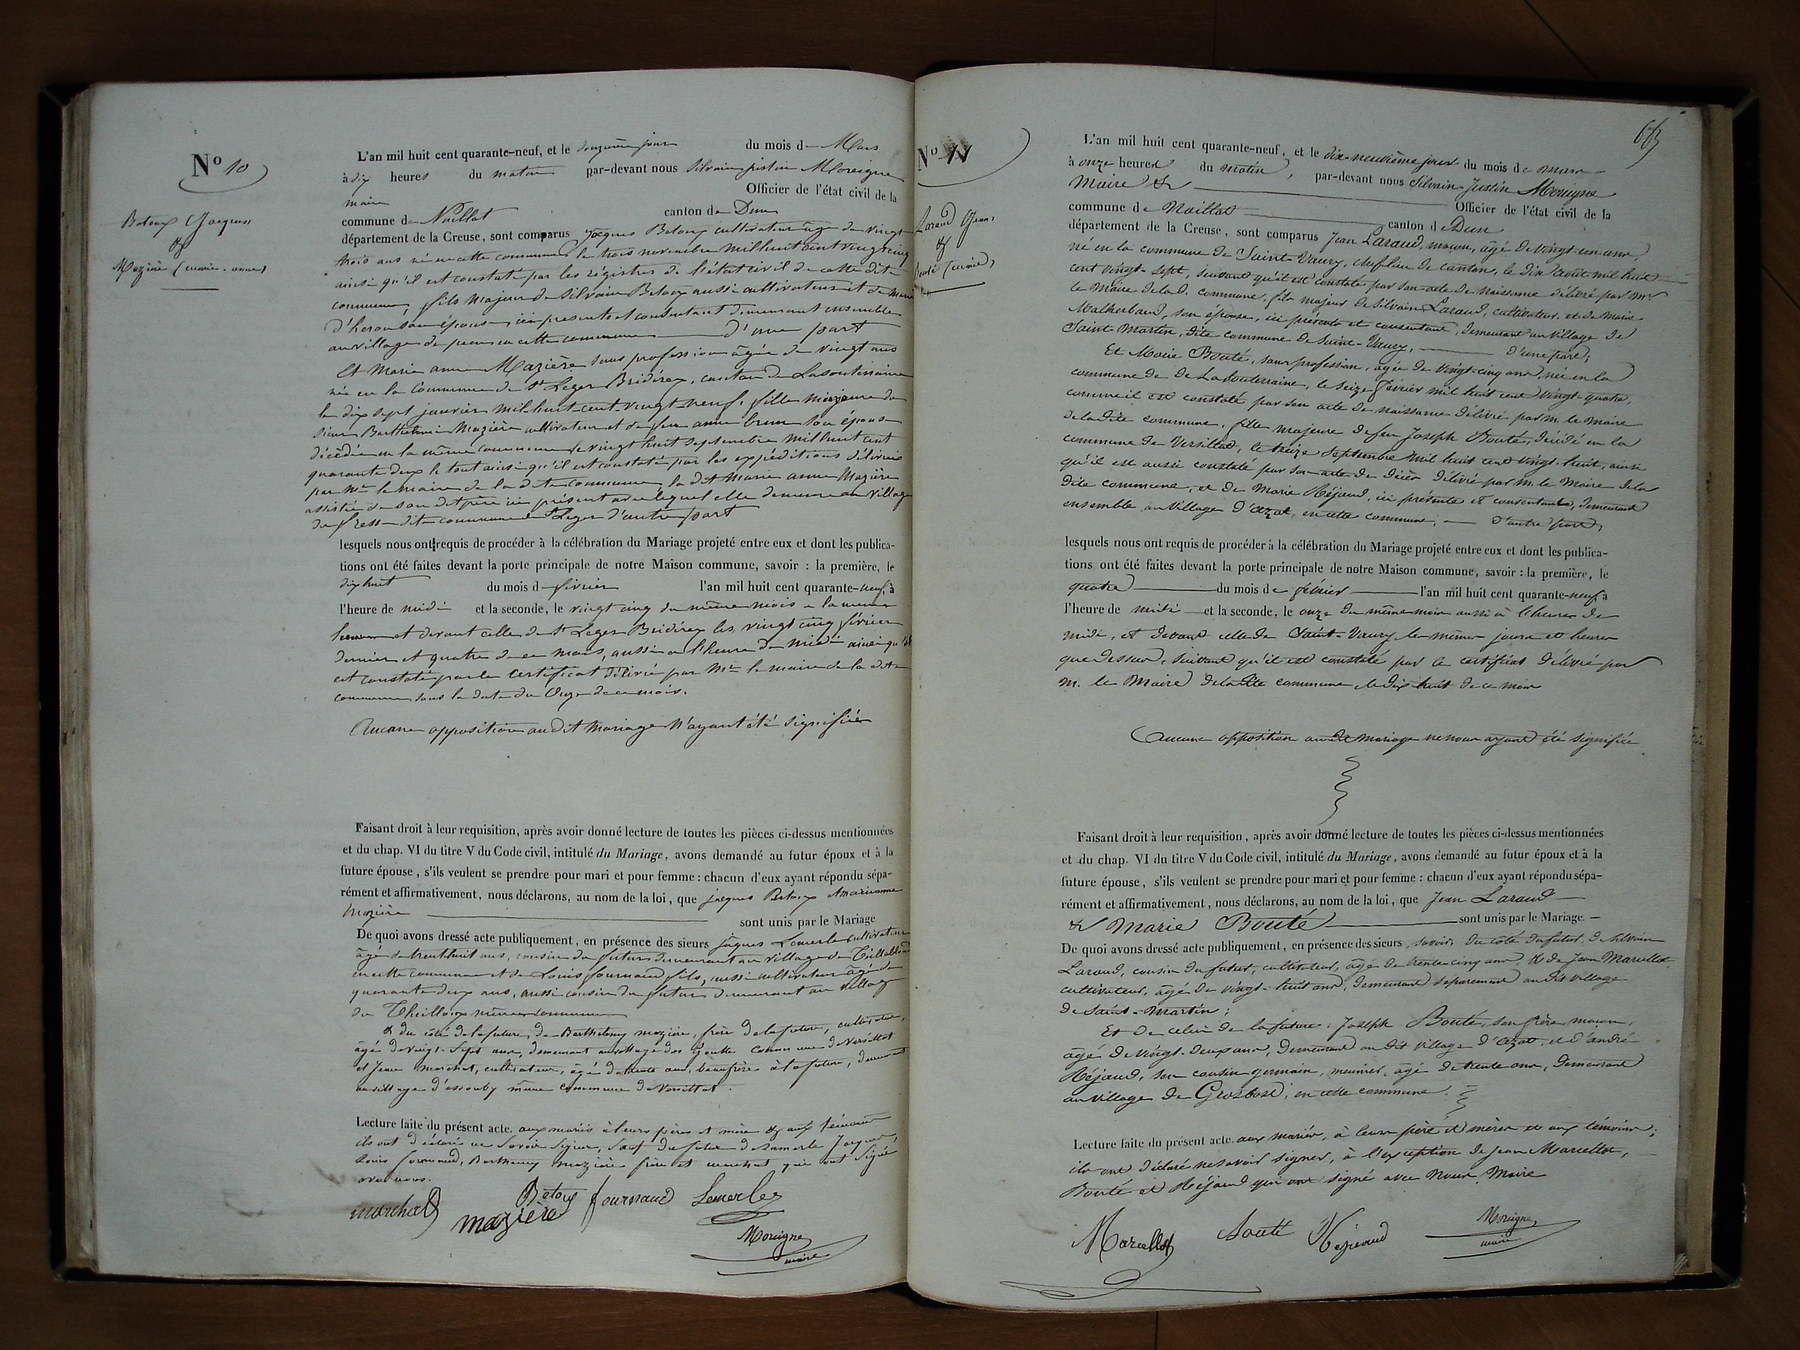 N° 10
Betoux Jacques
&
Mazière (marie-anne)
L'an mil huit cent quarante-neuf, et le douzième jour du mois de Mars
à dix heures du matin par-devant nous Silvain justin Moreigne
maire Officier de l'état civil de la
commune de Naillat canton de Dun
département de la Creuse, sont comparus jacques Betoux cultivateur âgé de vingt
trois ans né en cette commune le trois novembre mil huit cent vingt cinq
ainsi qu'il est constaté par les régistres de l'état civil de cette dite
commune, fils majeur de Silvain Betoux aussi cultivateur et de Marie
d'heron son épouse, ici présents et consentant demeurant ensemble
au village de en cette commune d'une part
Et Marie anne Mazière sans profession âgée de vingt ans
née en la Commune de St Leger Bridéreix, canton de Lasouterraine
le dix sept janvier mil huit cent vingt neuf, fille mineure de
sieur Barthelemi Mazière cultivateur et de feue anne brun son épouse
décédée en la même commune le vingt huit septembre mil huit cent
quarante deux le tout ainsi qu'il est constaté par les expéditions délivrées
par Mr le maire de la dite commune, la dite Marie anne Mazière
assistée de son dit père ici présent avec lequel elle demeure au village
du dite commune de St Leger d'autre part
lesquels nous ont requis de procéder à la célébration du Mariage projeté entre eux et dont les publica-
tions ont été faites devant la porte principale de notre Maison commune, savoir : la première, le
dix huit du mois de février l'an mil huit cent quarante-neuf, à
l'heure de midi et la seconde, le vingt cinq du même mois a la même
heure et devant celle de St Leger Bridéreix les vingt cinq février
dernier et quatre de ce mois, aussi a l'heure de midi ainsi qu'il
est constaté par le certificat délivré par Mr le maire de la dite
commune sous la date du Onze de ce mois.
Aucune opposition au dit Mariage N'ayant été signifiée
Faisant droit à leur requisition, après avoir donné lecture de toutes les pièces ci-dessus mentionnées
et du chap. VI du titre V du Code civil, intitulé du Mariage, avons demandé au futur époux et à la
future épouse, s'ils veulent se prendre pour mari et pour femme : chacun d'eux ayant répondu sépa-
rément et affirmativement, nous déclarons, au nom de la loi, que jacques Betoux & marie anne
Mazière sont unis par le Mariage
De quoi avons dressé acte publiquement, en présence des sieurs jaques Lemerle cultivateur
âgé de trente huit ans, cousin du futur demeurant au village de
en cette commune et de Louis fournaud fils, aussi cultivateur âgé de
quarante deux ans, aussi cousin du futur demeurant au village
de même commune
& du côté de la future, de Barthelemy mazière, frère de la future, cultivateur,
âgé de vingt-sept ans, demeurant au village des Gouttes commune de Versillat
et jean marchat, cultivateur, âgé de trente ans, beau frère à la future, demeurant
au village d'essouby même commune de Versillat.
Lecture faite du présent acte. aux mariés à leurs pères et mère & aux témoins
ils ont déclaré ne savoir signer, sauf du futur, de Lemerle Jacques,
Louis fournaud, Barthelemy mazière frère et marchat qui ont signé
avec nous.
marchat Betoux fournaud Lemerle
mazière
Moreigne
maire
663
N° 11
Laraud (Jean)
&
Bouté (marie)
L'an mil huit cent quarante-neuf, et le dix-neuvième jour du mois de mars
à onze heures du matin, par-devant nous Silvain-Justin Moreigne
Maire & Officier de l'état civil de la
commune de Naillat canton de Dun
département de la Creuse, sont comparus Jean Laraud, maçon, âgé de vingt-un ans
né en la commune de Saint-Vaury, chef-lieu de canton, le dix août mil huit
cent vingt-sept, suivant qu'il est constaté par son acte de naissance délivré par Mr
le Maire de la d. commune, fils majeur de Silvain Laraud, cultivateur, et de Marie
Malherbaud, son épouse, ici présents et consentant, demeurant au Village de
Saint-Martin, dite commune de Saint-Vaury, d'une part;
Et Marie Bouté, sans profession, agée de vingt-cinq ans, née en la
commune de de La Souterraine, le seize février mil huit cent vingt-quatre,
comme il est constaté par son acte de naissance délivré par m. le maire
de la dite commune, fille majeure de feu Joseph Bouté, décédé en la
commune de Versillat, le treize septembre mil huit cent vingt-huit, ainsi
qu'il est aussi constaté par son acte de décès délivré par m. le Maire de la
dite commune, et de Marie Réjaud, ici présente et consentante, demeurant
ensemble au Village d'Azat, en cette commune, d'autre part,
lesquels nous ont requis de procéder à la célébration du Mariage projeté entre eux et dont les publica-
tions ont été faites devant la porte principale de notre Maison commune, savoir : la première, le
quatre du mois de février l'an mil huit cent quarante-neuf, à
l'heure de midi et la seconde, le onze du même mois aussi à l'heure de
midi, et devant celle de Saint-Vaury les mêmes jours et heures
que dessus, suivant qu'il est constaté par le certificat délivré par
m. le Maire de la dite commune le dix-huit de ce mois
Aucune opposition au dit mariage ne nous ayant été signifiée
Faisant droit à leur requisition, après avoir donné lecture de toutes les pièces ci-dessus mentionnées
et du chap. VI du titre V du Code civil, intitulé du Mariage, avons demandé au futur époux et à la
future épouse, s'ils veulent se prendre pour mari et pour femme : chacun d'eux ayant répondu sépa-
rément et affirmativement, nous déclarons, au nom de la loi, que Jean Laraud
& Marie Bouté sont unis par le Mariage.
De quoi avons dressé acte publiquement, en présence des sieurs, savoir, du côté du futur, de Silvain
Laraud, cousin du futur, cultivateur, agé de trente cinq ans, & de Jean Marcellot,
cultivateur, âgé de vingt-huit ans, demeurant séparément au dit village
de Saint-Martin;
Et de celui de la future : Joseph Bouté, son frère, maçon,
âgé de vingt-deux ans, demeurant au dit village d'azat, et d'andré
Réjaud, son cousin germain, meunier, âgé de trente ans, demeurant
au village de Grosbost, en cette commune.
Lecture faite du présent acte. aux mariés, à leurs père et mères et aux témoins;
ils ont déclaré ne savoir signer, à l'exception de Jean Marcellot,
Bouté et Réjaud qui ont signé avec Nous Maire
Marcellot Bouté Réjeaud Moreigne
maire